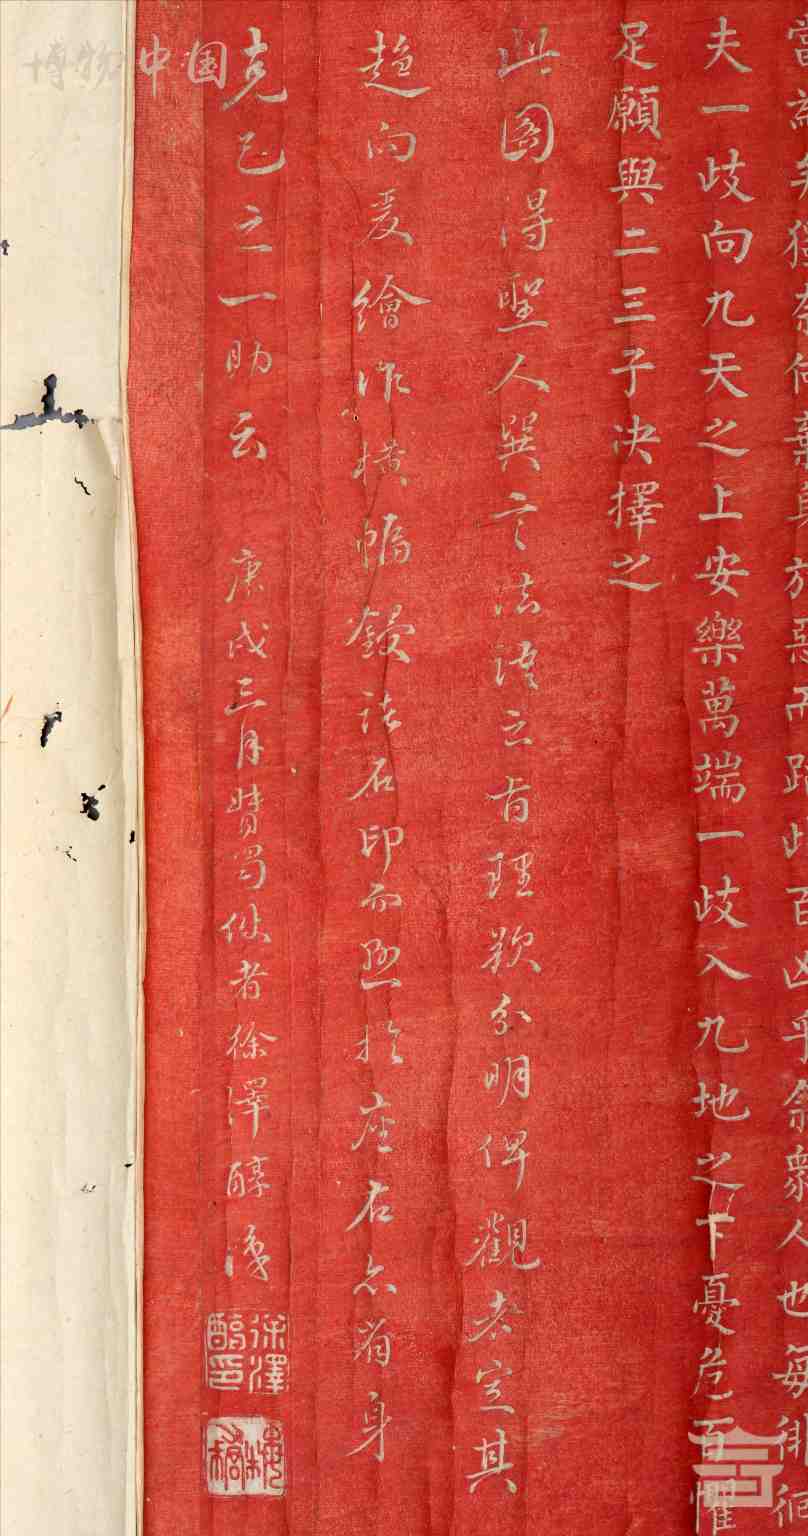 何棄於惡而蹈此百凶乎余眾人也每徘徊
夫一歧向九天之上安樂萬端一歧入九地之下憂危百懼
足願與二三子决擇之
此圖得聖人巽言法語之旨理欲分明俾觀者定其
趨向爰繪作橫幅鋟諸石印而懸於座右亦省身
克己之一助云 庚戌三月督蜀使者徐澤醇識
徐澤醇印
梅橋
博物中国